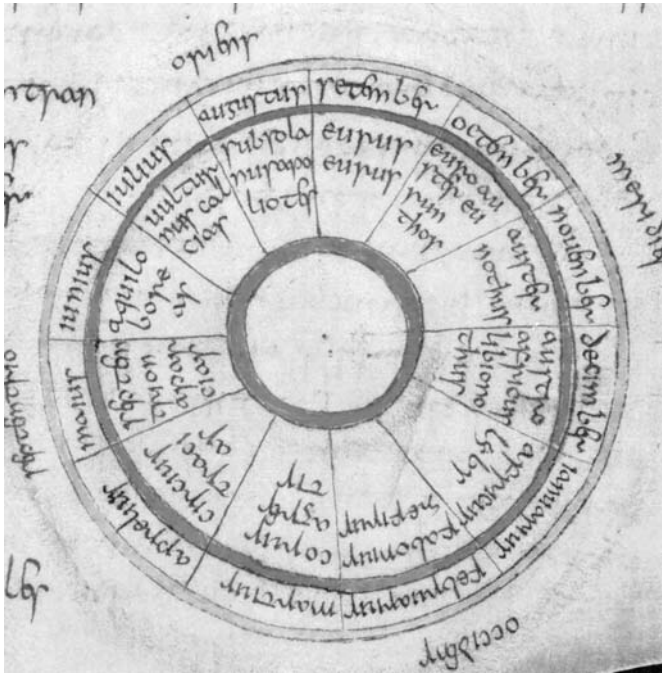 oriens
augustus
setember
octember
nouember
december
ianuarius
februarius
martius
apprelius
maius
iunius
iulius
subsola
nus apo
liotes
eurus
eurus
euro au
ster eu
run
thos
auster
nothus
austro
africus
libiono
thus
africus
libs
fabonius
zepirus
corus
agres
tis
circius
traci
as
septen
trion
apar
cias
aquilo
bore
as
uultur
nus cal
cias
occidens